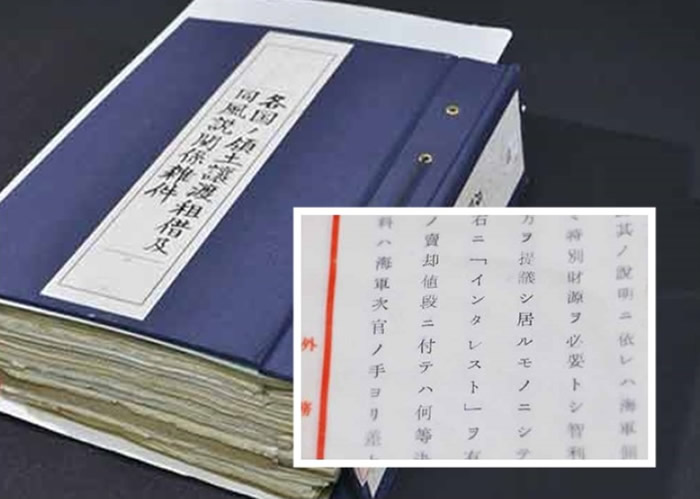 各国ノ領土讓渡租借及
同風説関係雜件
其ノ說明ニ依レハ海軍
特別財源ヲ必要トシ智利
方ヲ提議シ居ルモノニシテ
右ニ「インタレスト」ヲ有
ノ賣却値段ニ付テハ何等
料ハ海軍次官ノ手ヨリ差
外務